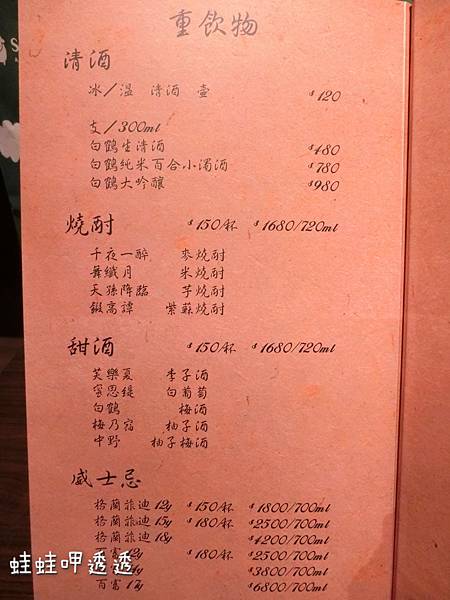 重飲物
清酒
冰／溫 清酒 壺 $120
支／300ml
白鶴生清酒 $480
白鶴純米百合小濁酒 $780
白鶴大吟釀 $980
燒酎 $150/杯 $1680/720ml
千夜一醉 麥燒酎
舞纖月 米燒酎
天孫降臨 芋燒酎
鍛高譚 紫蘇燒酎
甜酒 $150/杯 $1680/720ml
芙樂夏 李子酒
蜜思緹 白葡萄
白鶴 梅酒
梅乃宿 柚子酒
中野 柚子梅酒
威士忌
格蘭菲迪 12y $150/杯 $1800/700ml
格蘭菲迪 15y $180/杯 $2500/700ml
格蘭菲迪 18y $4200/700ml
百富 12y $180/杯 $2500/700ml
$3800/700ml
百富 17y $6800/700ml
蛙蛙呷透透